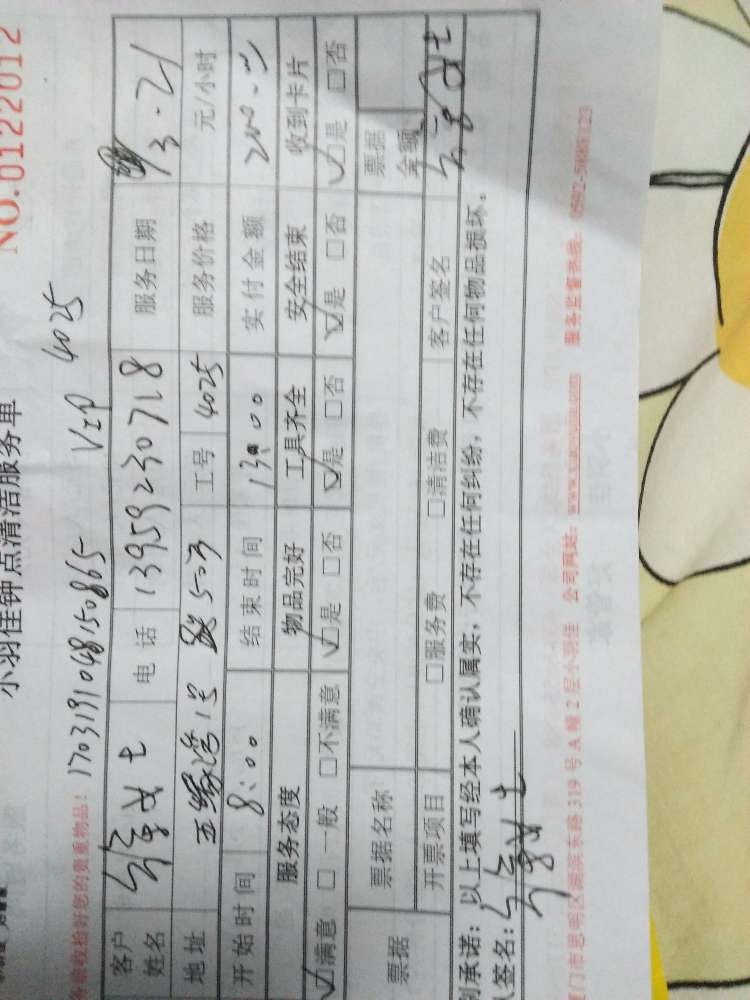 NO.0122012
小羽佳钟点清洁服务单
收拾好您的贵重物品! 1703191048150865 VIP 4025
客户姓名 徐女士 电话 13959230718 服务日期 3.21
地址 号 503 工号 4025 服务价格 元/小时
开始时间 8:00 结束时间 13:00 实付金额 200.
服务态度 物品完好 工具齐全 安全结束 收到卡片
☑满意 □一般 □不满意 ☑是 □否 ☑是 □否 ☑是 □否 ☑是 □否
票据 票据名称 票据金额
开票项目 □服务费 □清洁费 客户签名 徐女士
承诺:以上填写经本人确认属实,不存在任何纠纷,不存在任何物品损坏。
签名:徐女士
门市思明区湖滨东路319号A幢2层小羽佳 公司网站: 服务监督热线: